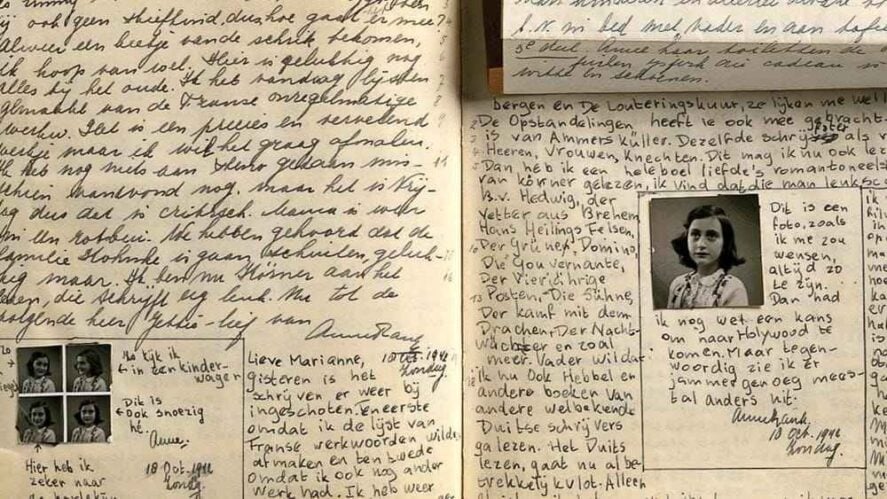 ij ook geen stiefkind, dus hoe gaat er mee?
Alweer een beetje van de schrik bekomen,
ik hoop van wel. Hier is gelukkig nog
alles bij het oude. Ik heb vandaag lijsten
gemaakt van de Franse onregelmatige
werkw. Het is een precies en vervelend
werkje maar ik wil het graag afmaken.
Ik heb nog niets aan steno gedaan mis-
schien vanavond nog. maar het is Vrij-
dag dus dat is critisch. Mama is weer
in een
We hebben gehoord dat de
familie is gaan schuilen, geluk-
kig maar. Ik ben nu Körner aan het
lezen, die schrijft erg leuk. Nu tot de
volgende keer Jettje-lief van
Anne Frank
Zo kijk ik
in een kinder-
wagen
Dit is
ook snoezig
hé.
Anne.
Hier heb ik
zeker naar
18 Oct. 1942
Zondag
Lieve Marianne,
18 Oct. 1942
Zondag.
gisteren is het
schrijven er weer bij
ingeschoten. Ten eerste
omdat ik de lijst van
Franse werkwoorden wilde
afmaken en ten twede
omdat ik ook nog ander
werk had. Ik heb weer
in bed met Vader en aan tafel
5e deel. Anne haar toiletten de
vuilen ijsjurk die cadeau
witte en schoenen.
bergen en De Louteringskuur, ze lijken me wel
De Opstandelingen heeft ie ook mee gebracht.
is van Ammers Küller. Dezelfde schrijfster als v
Heeren, Vrouwen, Knechten. Dit mag ik nu ook lez
Dan heb ik een heleboel liefde's romantoneels
van Körner gelezen, ik vind dat die man leuk sch
B.v. Hedwig, der
Vetter aus Bremen
Hans Heilings Felsen,
Der Grüner Domino,
Die Gouvernante,
Der Vierjährige
Posten, Die Sühne,
Der Kampf mit dem
Drachen, Der Nacht-
wächter en zoal
meer. Vader wil dat
ik nu ook Hebbel en
andere boeken van
andere welbekende
Duitse schrijvers
ga lezen. Het Duits
lezen, gaat nu al be-
trekkelijk vlot. Alleen
Dit is een
foto, zoals
ik me zou
wensen,
altijd zo
te zijn.
Dan had
ik nog wel een kans
om naar Holywood te
komen. Maar tegen-
woordig zie ik er
jammer genoeg mees-
tal anders uit.
Anne Frank.
18 Oct. 1942
Zondag.